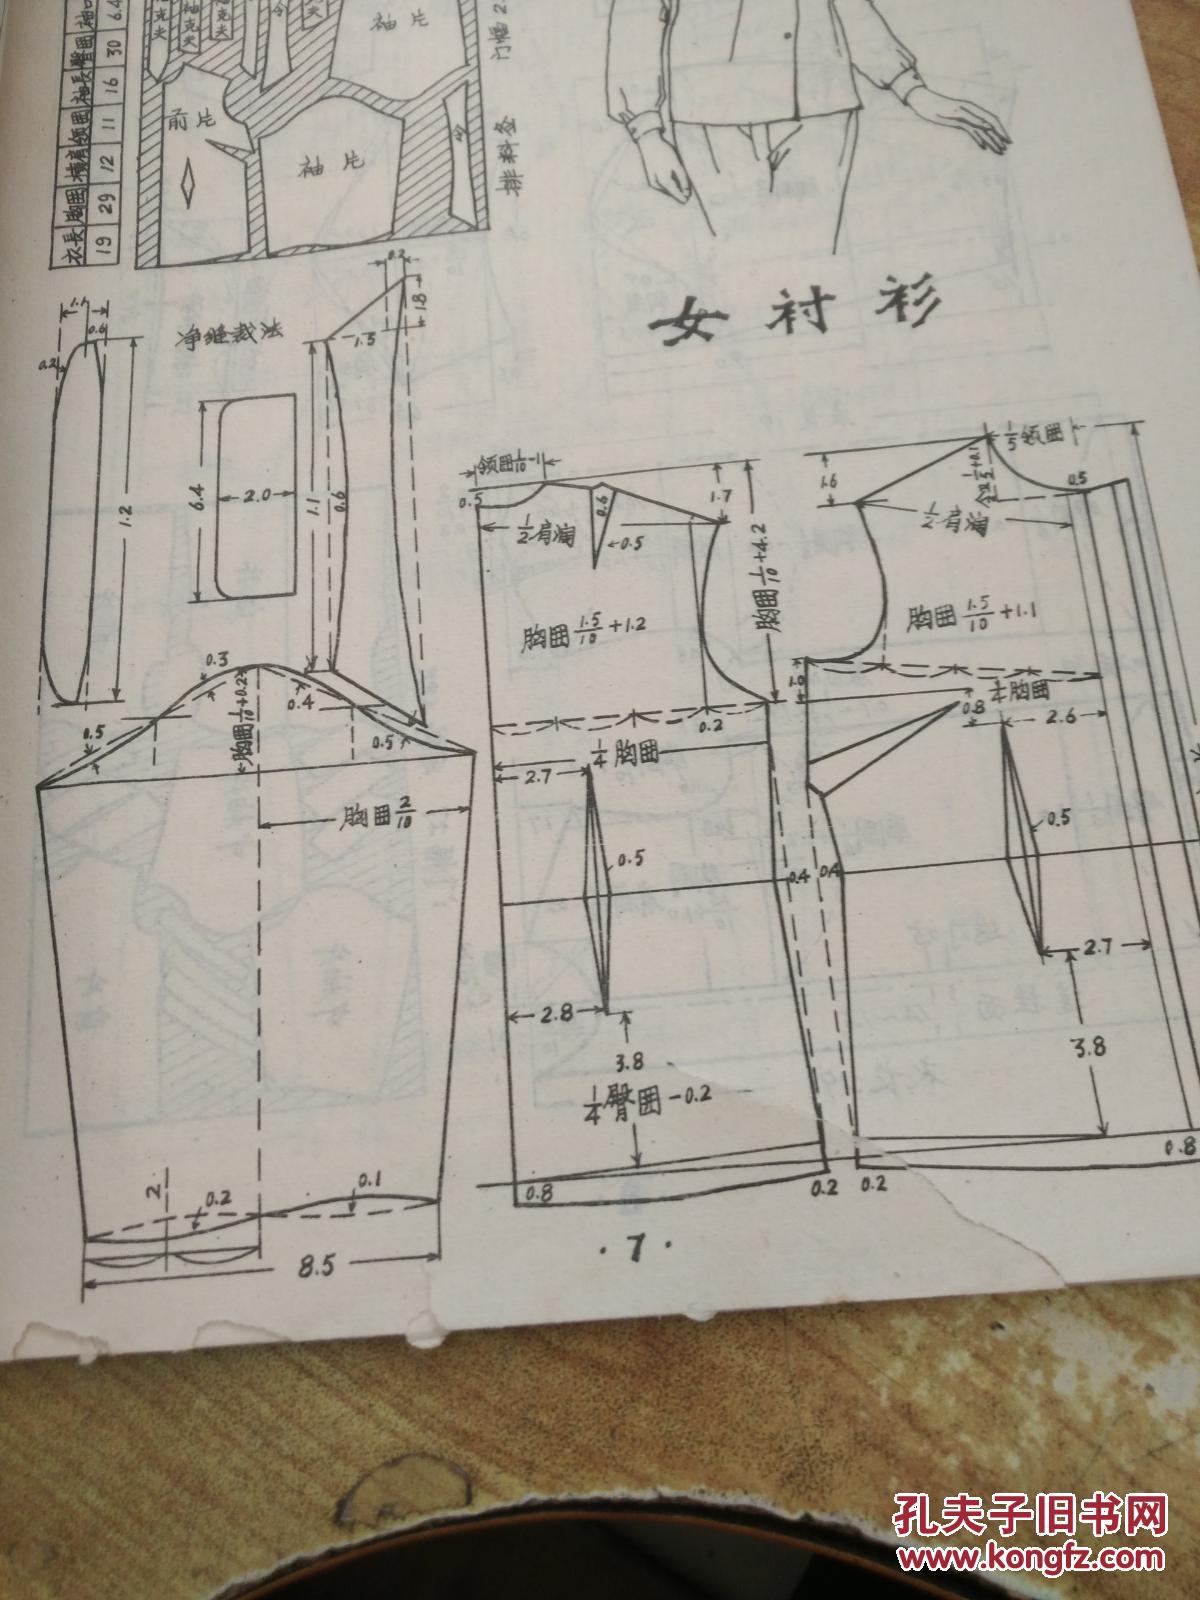 衣長 胸围 横肩 领围 袖長 臀围 袖口
19 29 12 11 16 30 6.4
克夫
袖克夫
克夫
夫
袖片
前片
袖片
门幅2.
排料图
女衬衫
净缝裁法
0.2
1.8
1.5
0.6
0.2
1.2
6.4
2.0
1.1
0.6
0.3
0.4
0.5
0.5
胸围1/10+0.2
胸围2/10
2
0.2
0.1
8.5
领围1/10
0.5
1/2肩阔
0.6
0.5
1.7
胸围1/10+4.2
胸围1.5/10+1.2
0.2
1/4胸围
2.7
0.5
0.4
2.8
3.8
1/4臀围-0.2
0.8
0.2
1/5领围
1.6
0.5
1/2肩阔
胸围1.5/10+1.1
1.0
1/4胸围
0.8
2.6
0.5
0.4
2.7
3.8
0.2
0.8
·7·
孔夫子旧书网
www.kongfz.com